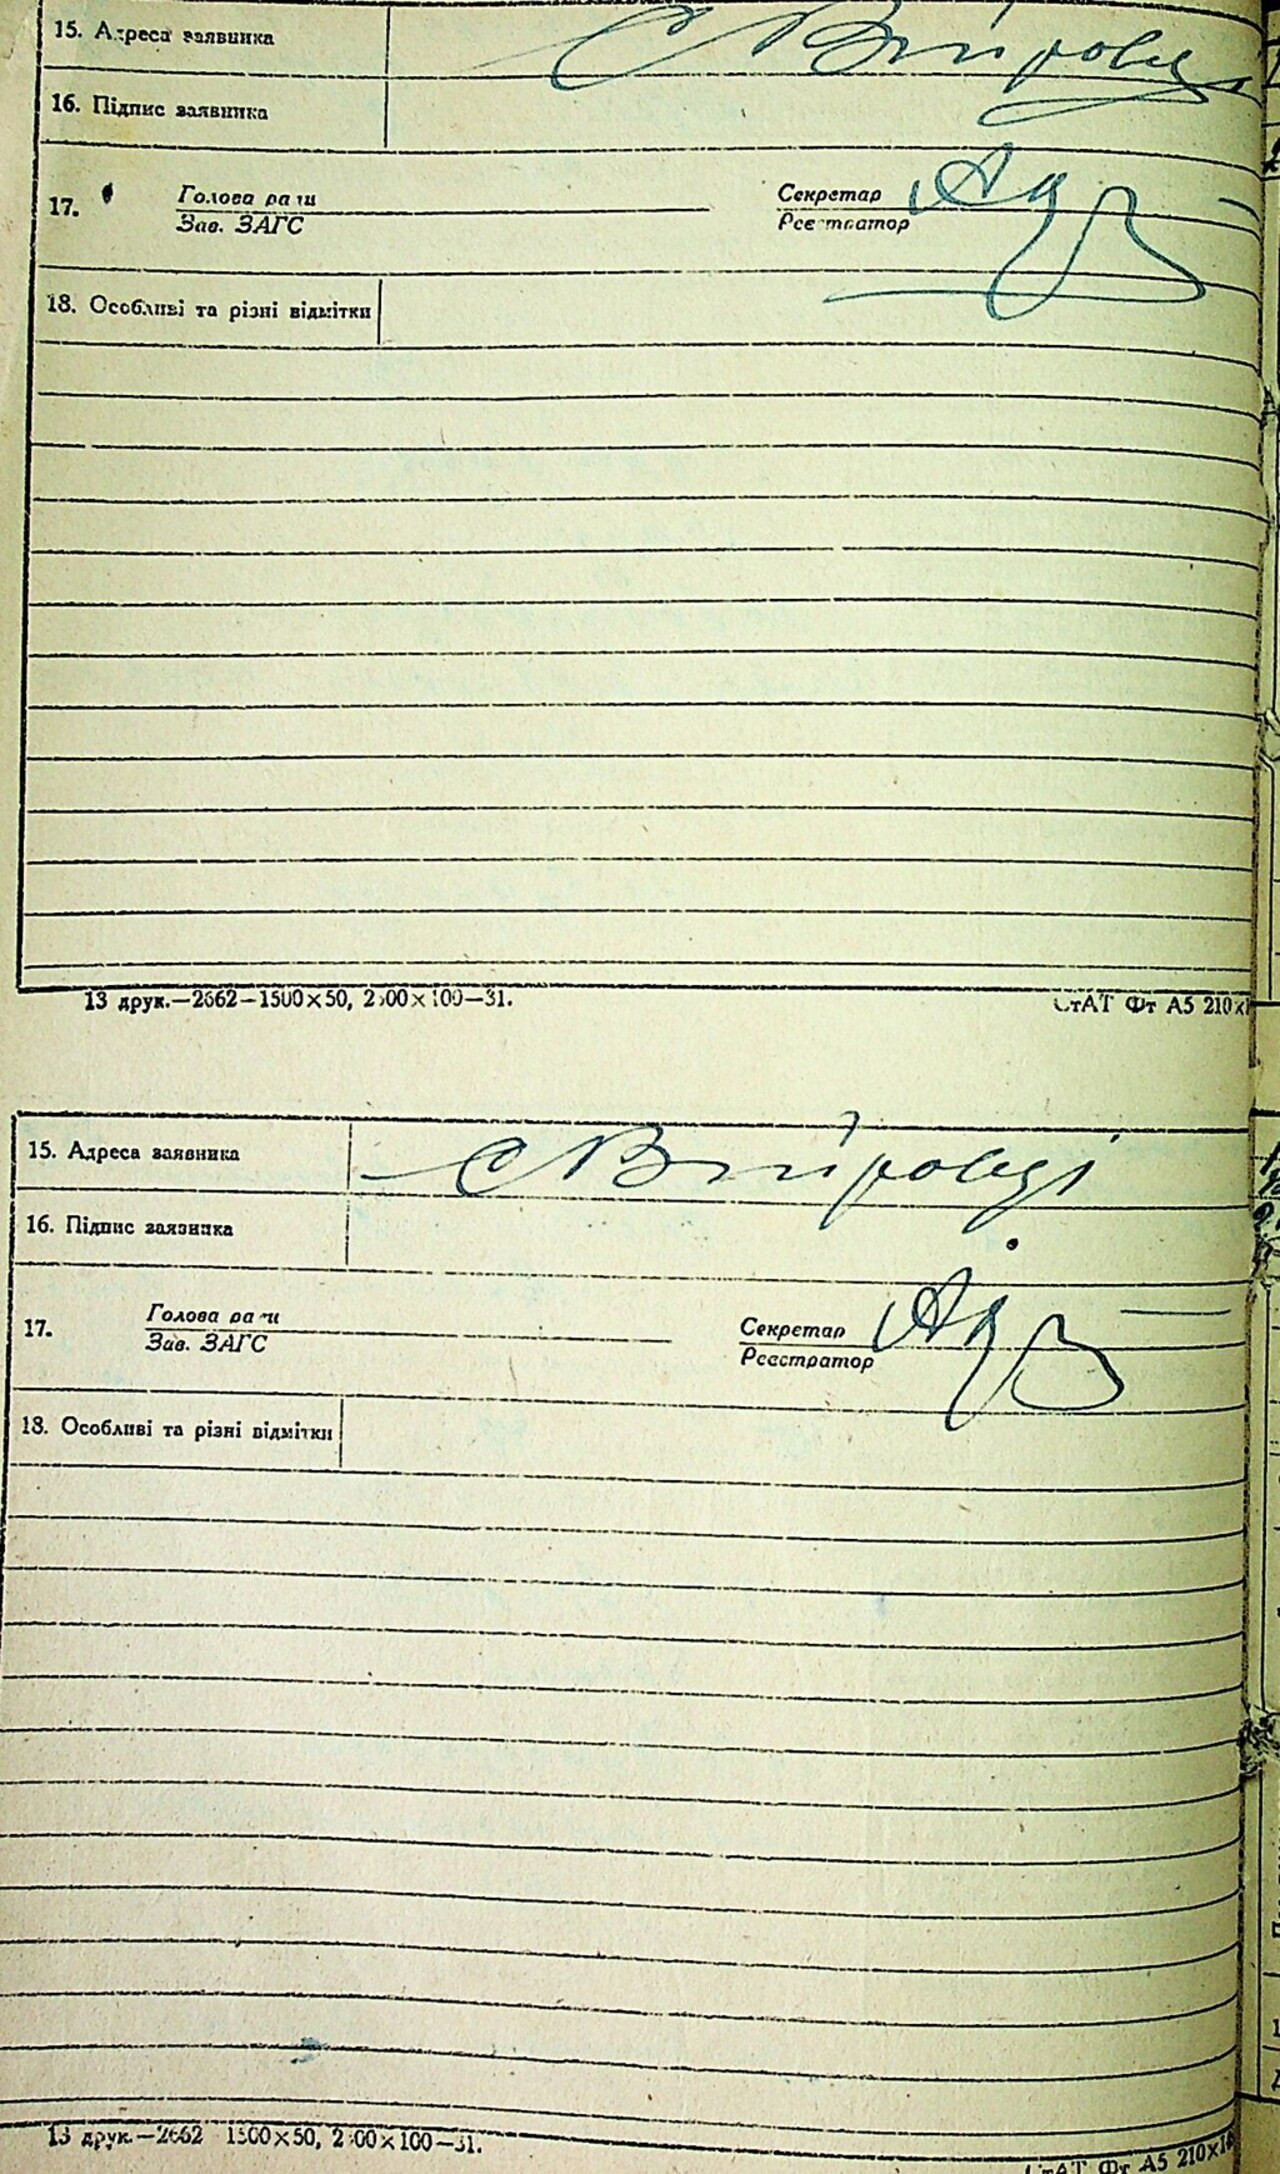 15. Адреса заявника С Війровці
16. Підпис заявника
17. Голова ради Секретар
Зав. ЗАГС Реєстратор
18. Особливі та різні відмітки
13 друк.—2662—1500×50, 2500×100—31. СтАТ Фт А5 210×
15. Адреса заявника С Війровці
16. Підпис заявника
17. Голова ради Секретар
Зав. ЗАГС Реєстратор
18. Особливі та різні відмітки
13 друк.—2662 1500×50, 2500×100—31. СтАТ Фт А5 210×